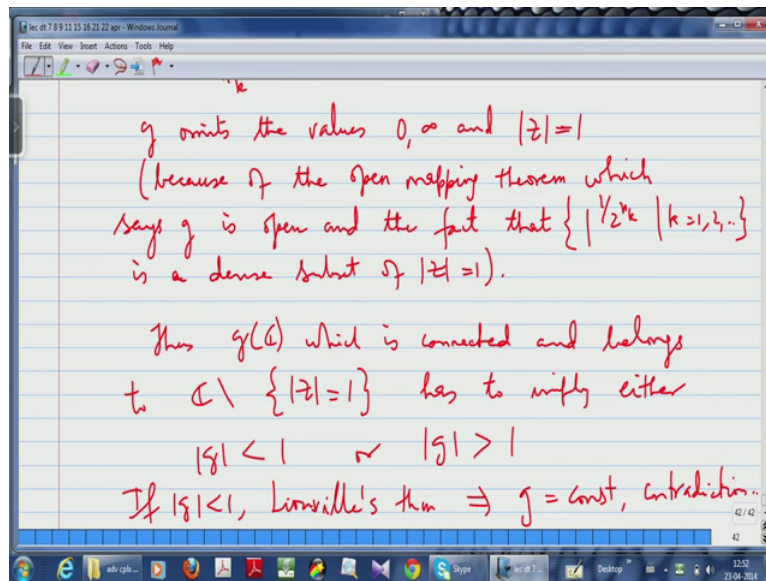 lec dt 7 8 9 11 15 16 21 22 apr - Windows Journal
File Edit View Insert Actions Tools Help
n_k
g omits the values 0, ∞ and |z| = 1
(because of the open mapping theorem which
says g is open and the fact that { 1^{1/2^{n_k}} | k=1,2,..}
is a dense subset of |z| = 1).
Thus g(ℂ) which is connected and belongs
to ℂ \ { |z| = 1 } has to imply either
|g| < 1 or |g| > 1
If |g|<1, Liouville's thm ⇒ g = const, contradiction..
42 / 42
42
adv cplx ... Skype lec dt 7 ... Desktop 12:52
23-04-2014